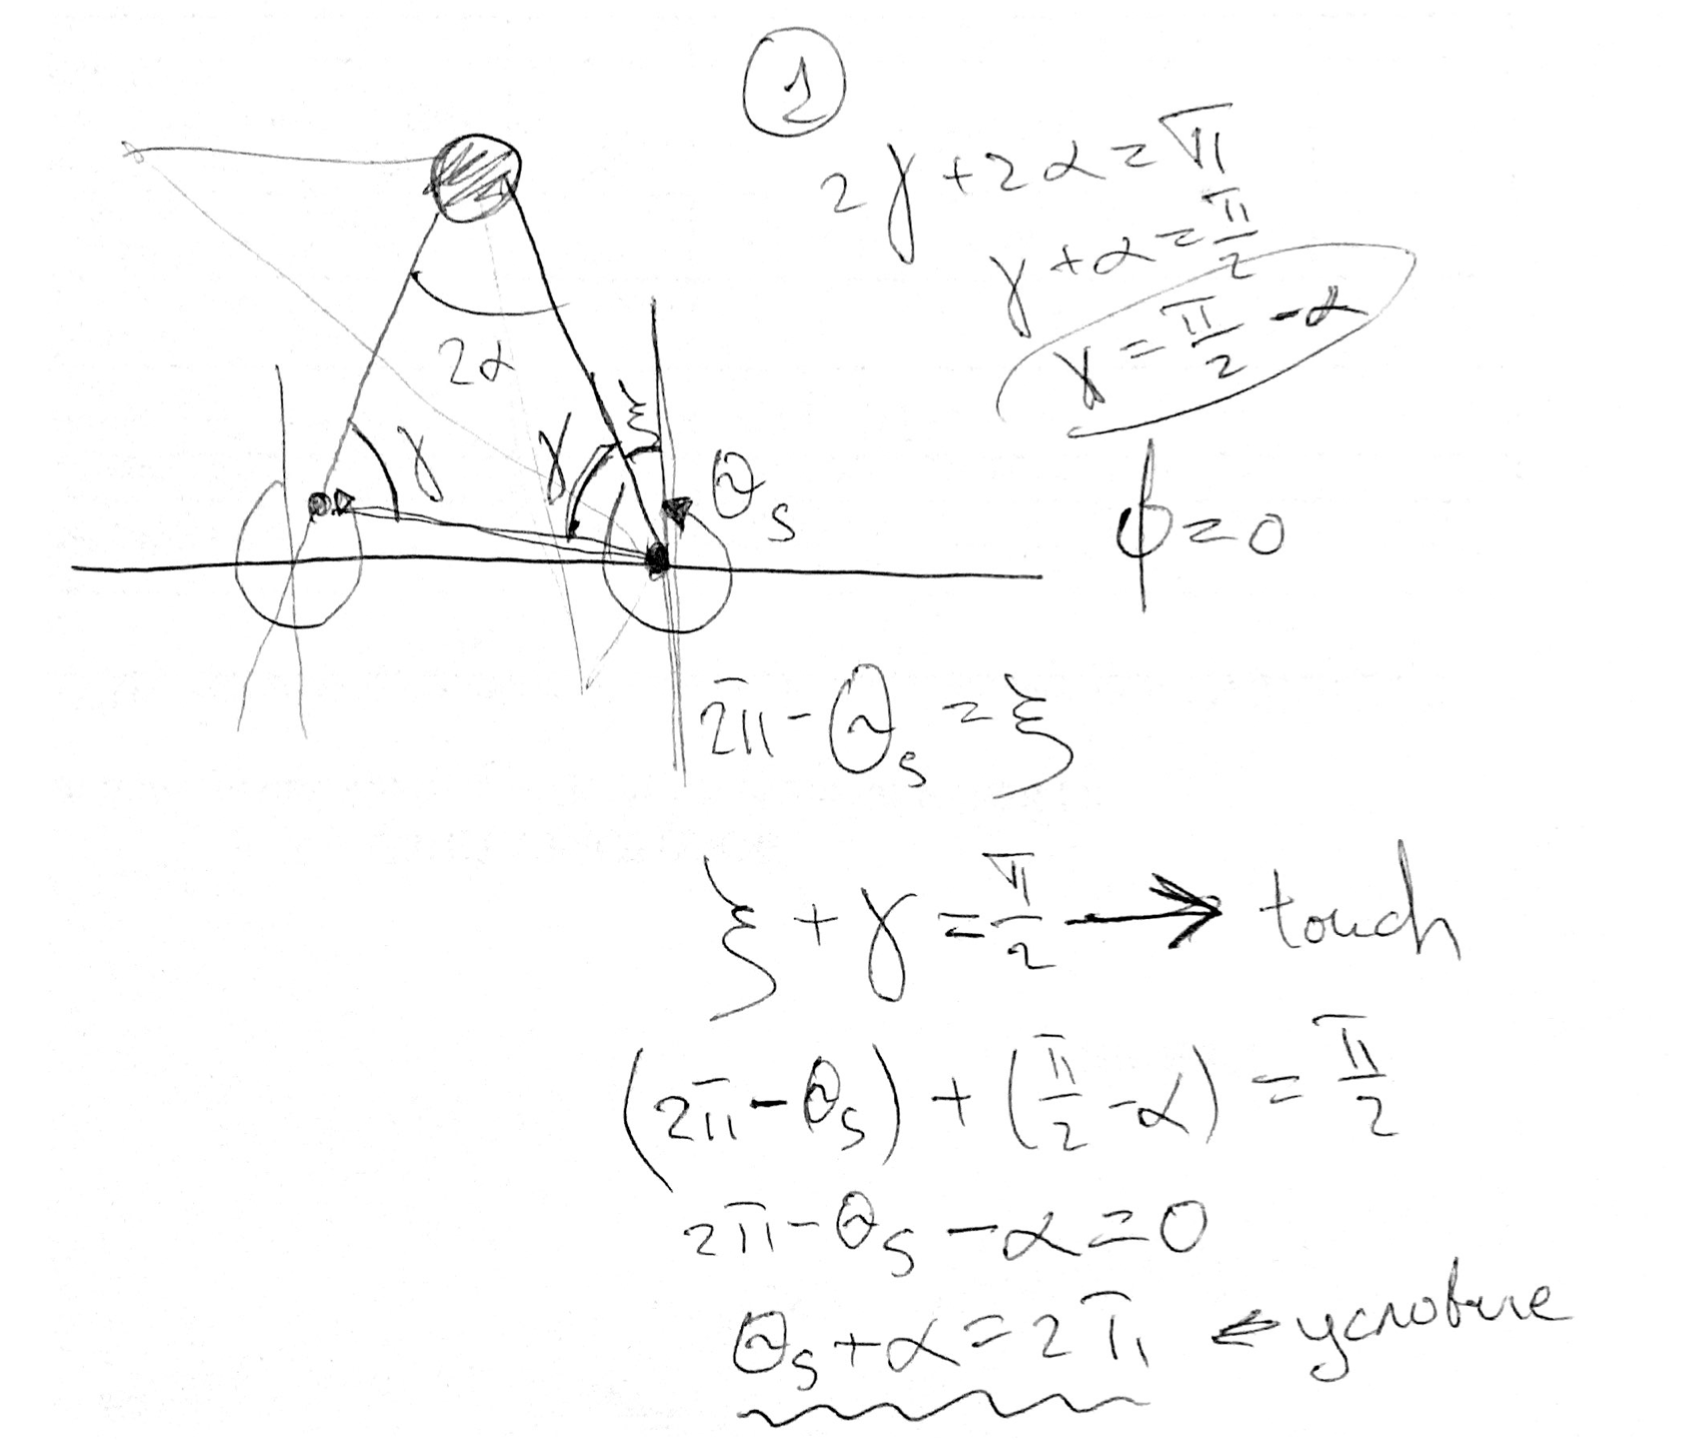 1
2γ + 2α = π
γ + α = π/2
γ = π/2 - α
2α
ξ
γ
γ
θs
ϕ = 0
2π - θs = ξ
ξ + γ = π/2 → touch
(2π - θs) + (π/2 - α) = π/2
2π - θs - α = 0
θs + α = 2π ← условие